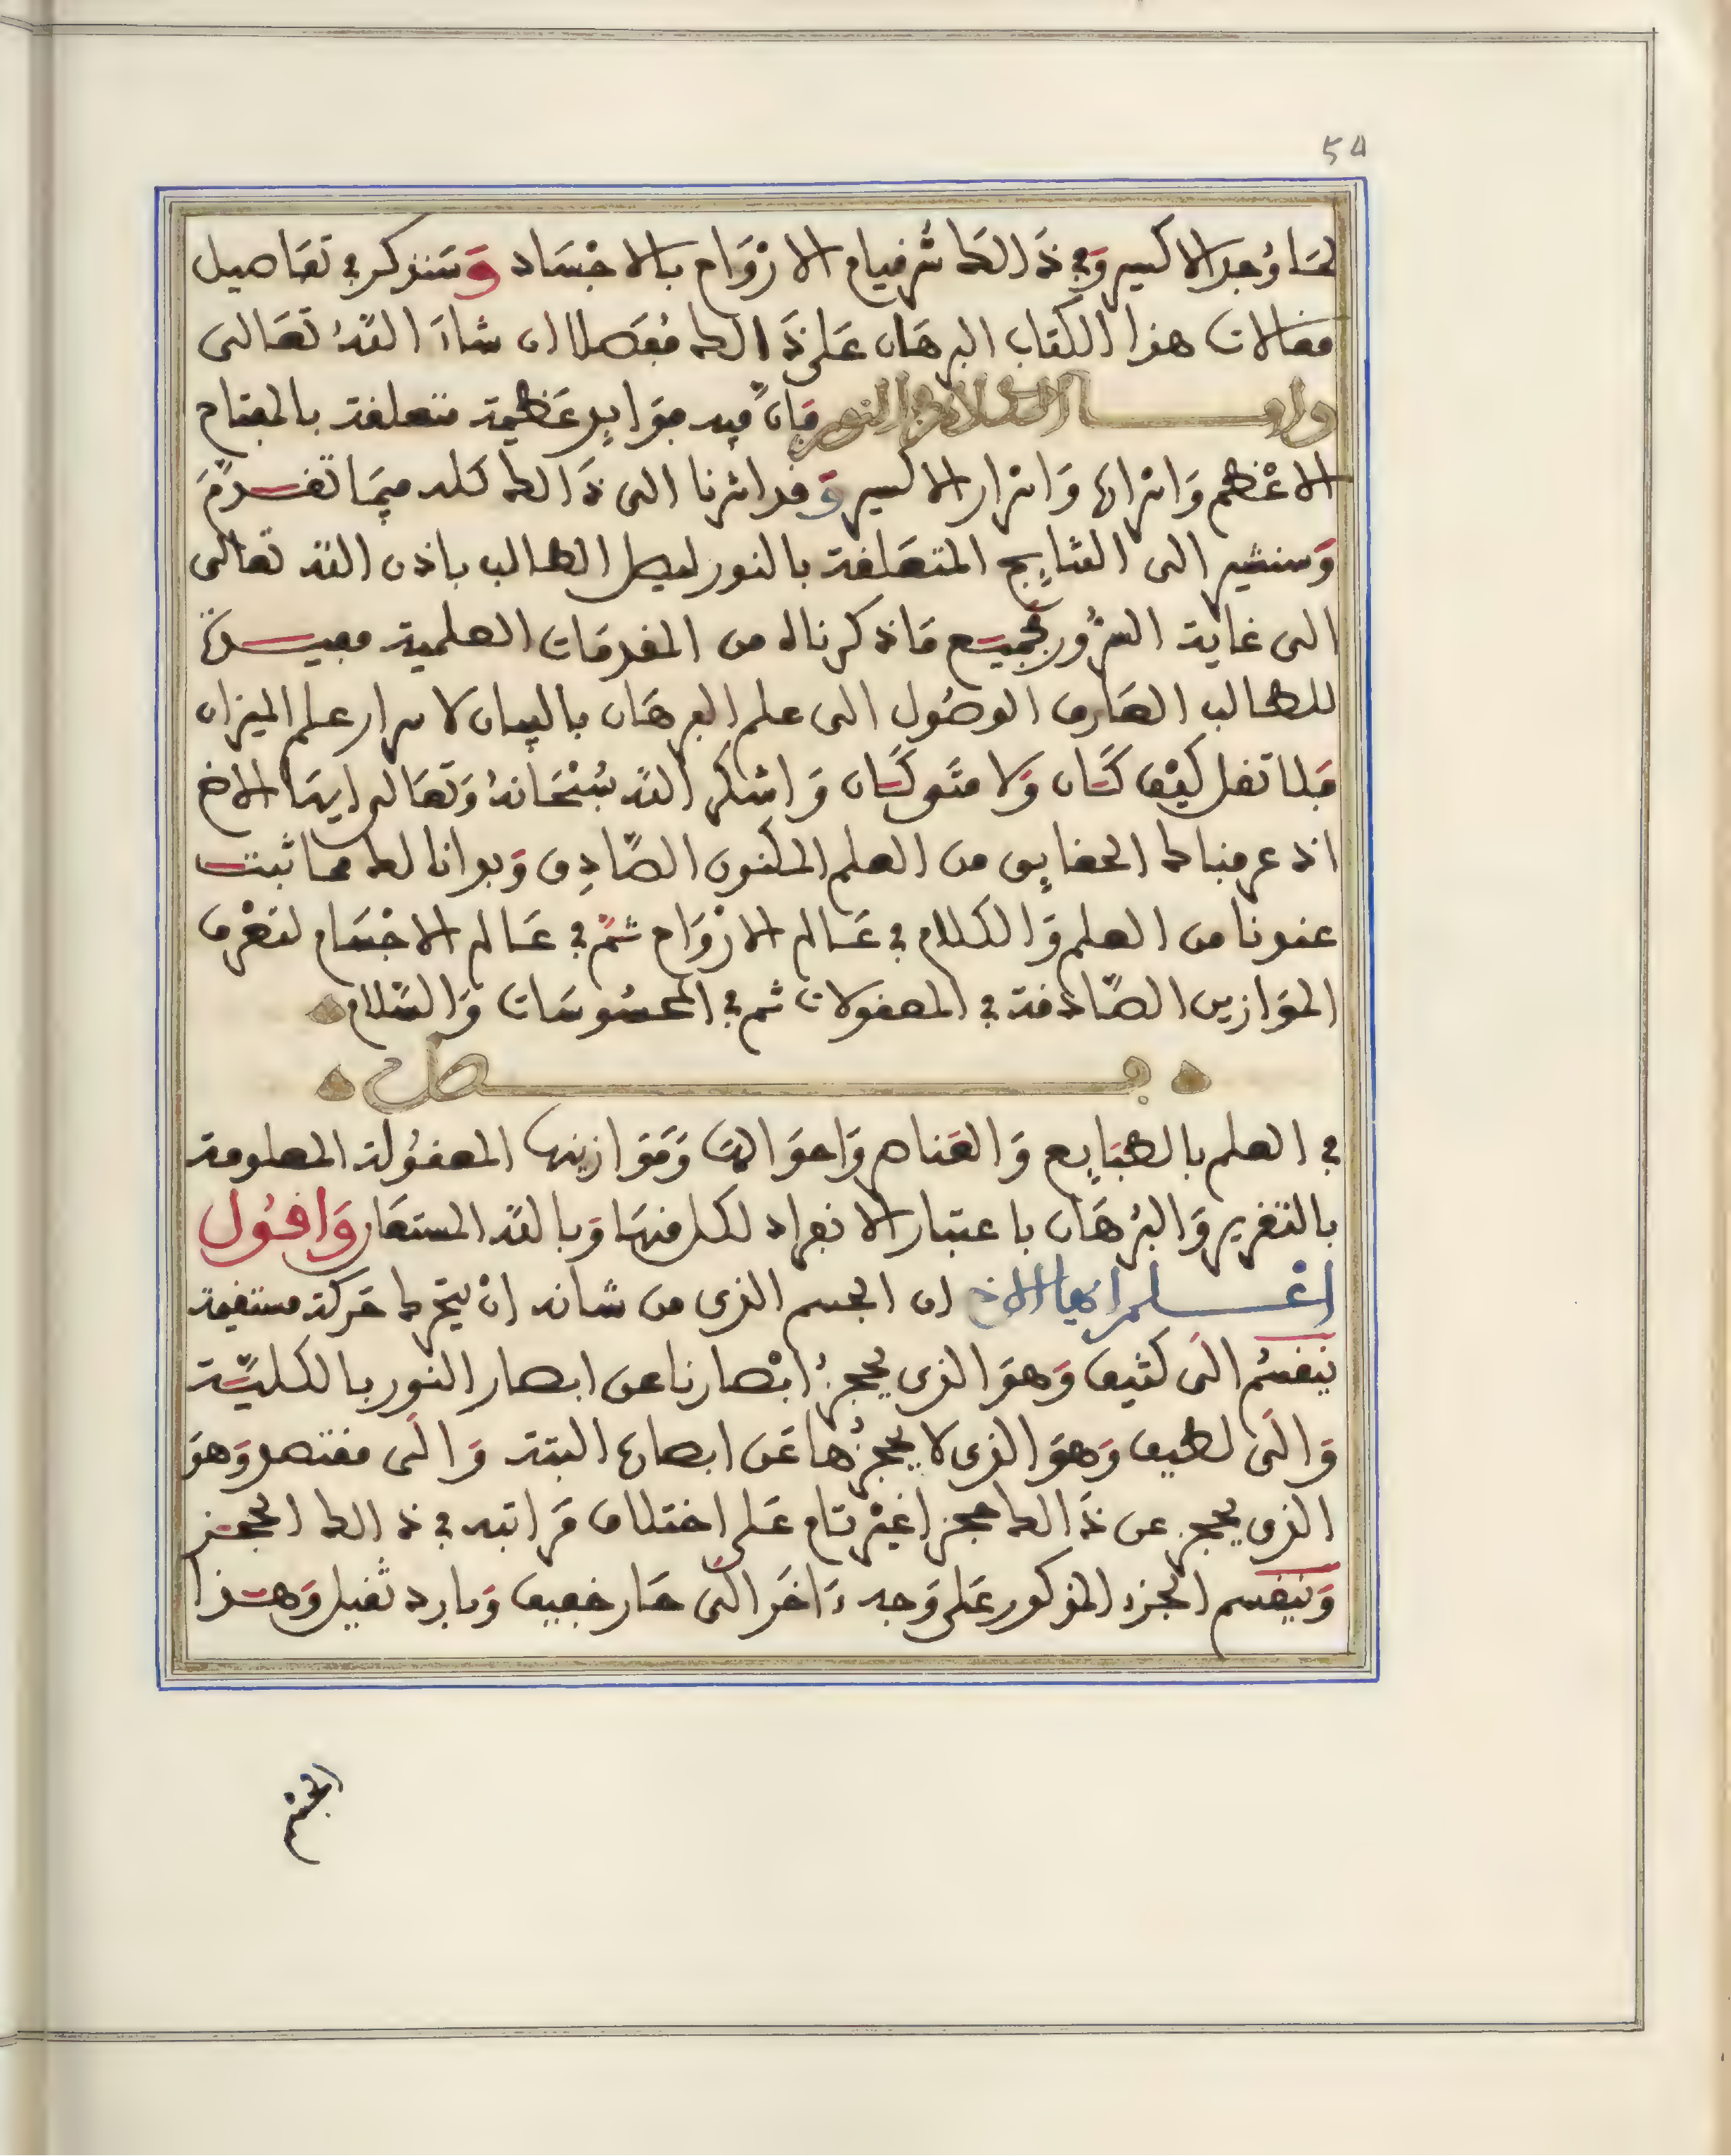 54
لما وُجد الاكسير وَفي ذَالك سر قيام الارْوَاح بالاجْسَاد وَسَنذكر في تفَاصيل
مقالات هذا الكتاب البرهَان عَلى ذَالك مُفَصلا ان شاءَ اللّهُ تعَالى
وامـــا الكلام في النور فَانّ فيه فوَايد عَظيمة متعلقة بالمفتاح
الاعْظم وَاسرارها وَاسرار الاكسير وَقد اشرنا الى ذَالك كله فيمَا تقـدّمَ
وَسنشير الى النتايج المتعَلقة بالنور ليصل الطالب باذن اللّه تعالى
الى غاية السرُور فجميع مَا ذكرناه من المقدمَات العلمية مفيــدة
للطالب العَارف الوصُول الى علم البرهَان بالبيان لاسرار علم الميزان
فَلا تقل كيْف كَان وَلا متَى كَان وَاشكر اللّه سُبْحَانهُ وَتعَالى ايهَا الاخ
اذ عرفناك الحقايق من العلم المكنون الصَّادِق وَبدانا لك مما ثبت
عندنا من العلم وَالكلام في عَالم الارْوَاح ثمّ في عَالم الاجْسَام لتعْرف
الموَازين الصَّادقة في المعقولات ثم في المحسُوسَات وَالسّلام
فـــصل
في العلم بالطبَايع وَالعَناصر وَاحوَالهَا وَمَوَازينها المعقُولة المعلومة
بالتقرير وَالبُرهَان باعتبار الانفراد لكل منهَا وَباللّه المستعَان وَاقُول
اعْـــلم ايها الاخ ان الجسم الذى من شانه انْ يتحرك حَركة مستقيمة
ينقسُم الَى كثيف وَهوَ الذى يحجزُ ابْصارنا عن ابصار النور بالكليَّة
وَالَى لطيف وَهوَ الذى لا يحجزُها عَن ابصارها البتة وَالَى مقتصد وَهوَ
الذى يحجز عن ذَالك حجزا غيْر تام عَلى اختلاف مَراتبه في ذالك الحجـز
وَينقسم الجزء المذكور عَلى وَجه ءَاخَر الَى حَار خفيف وَبارد ثقيل وَهـذا
الجسْم